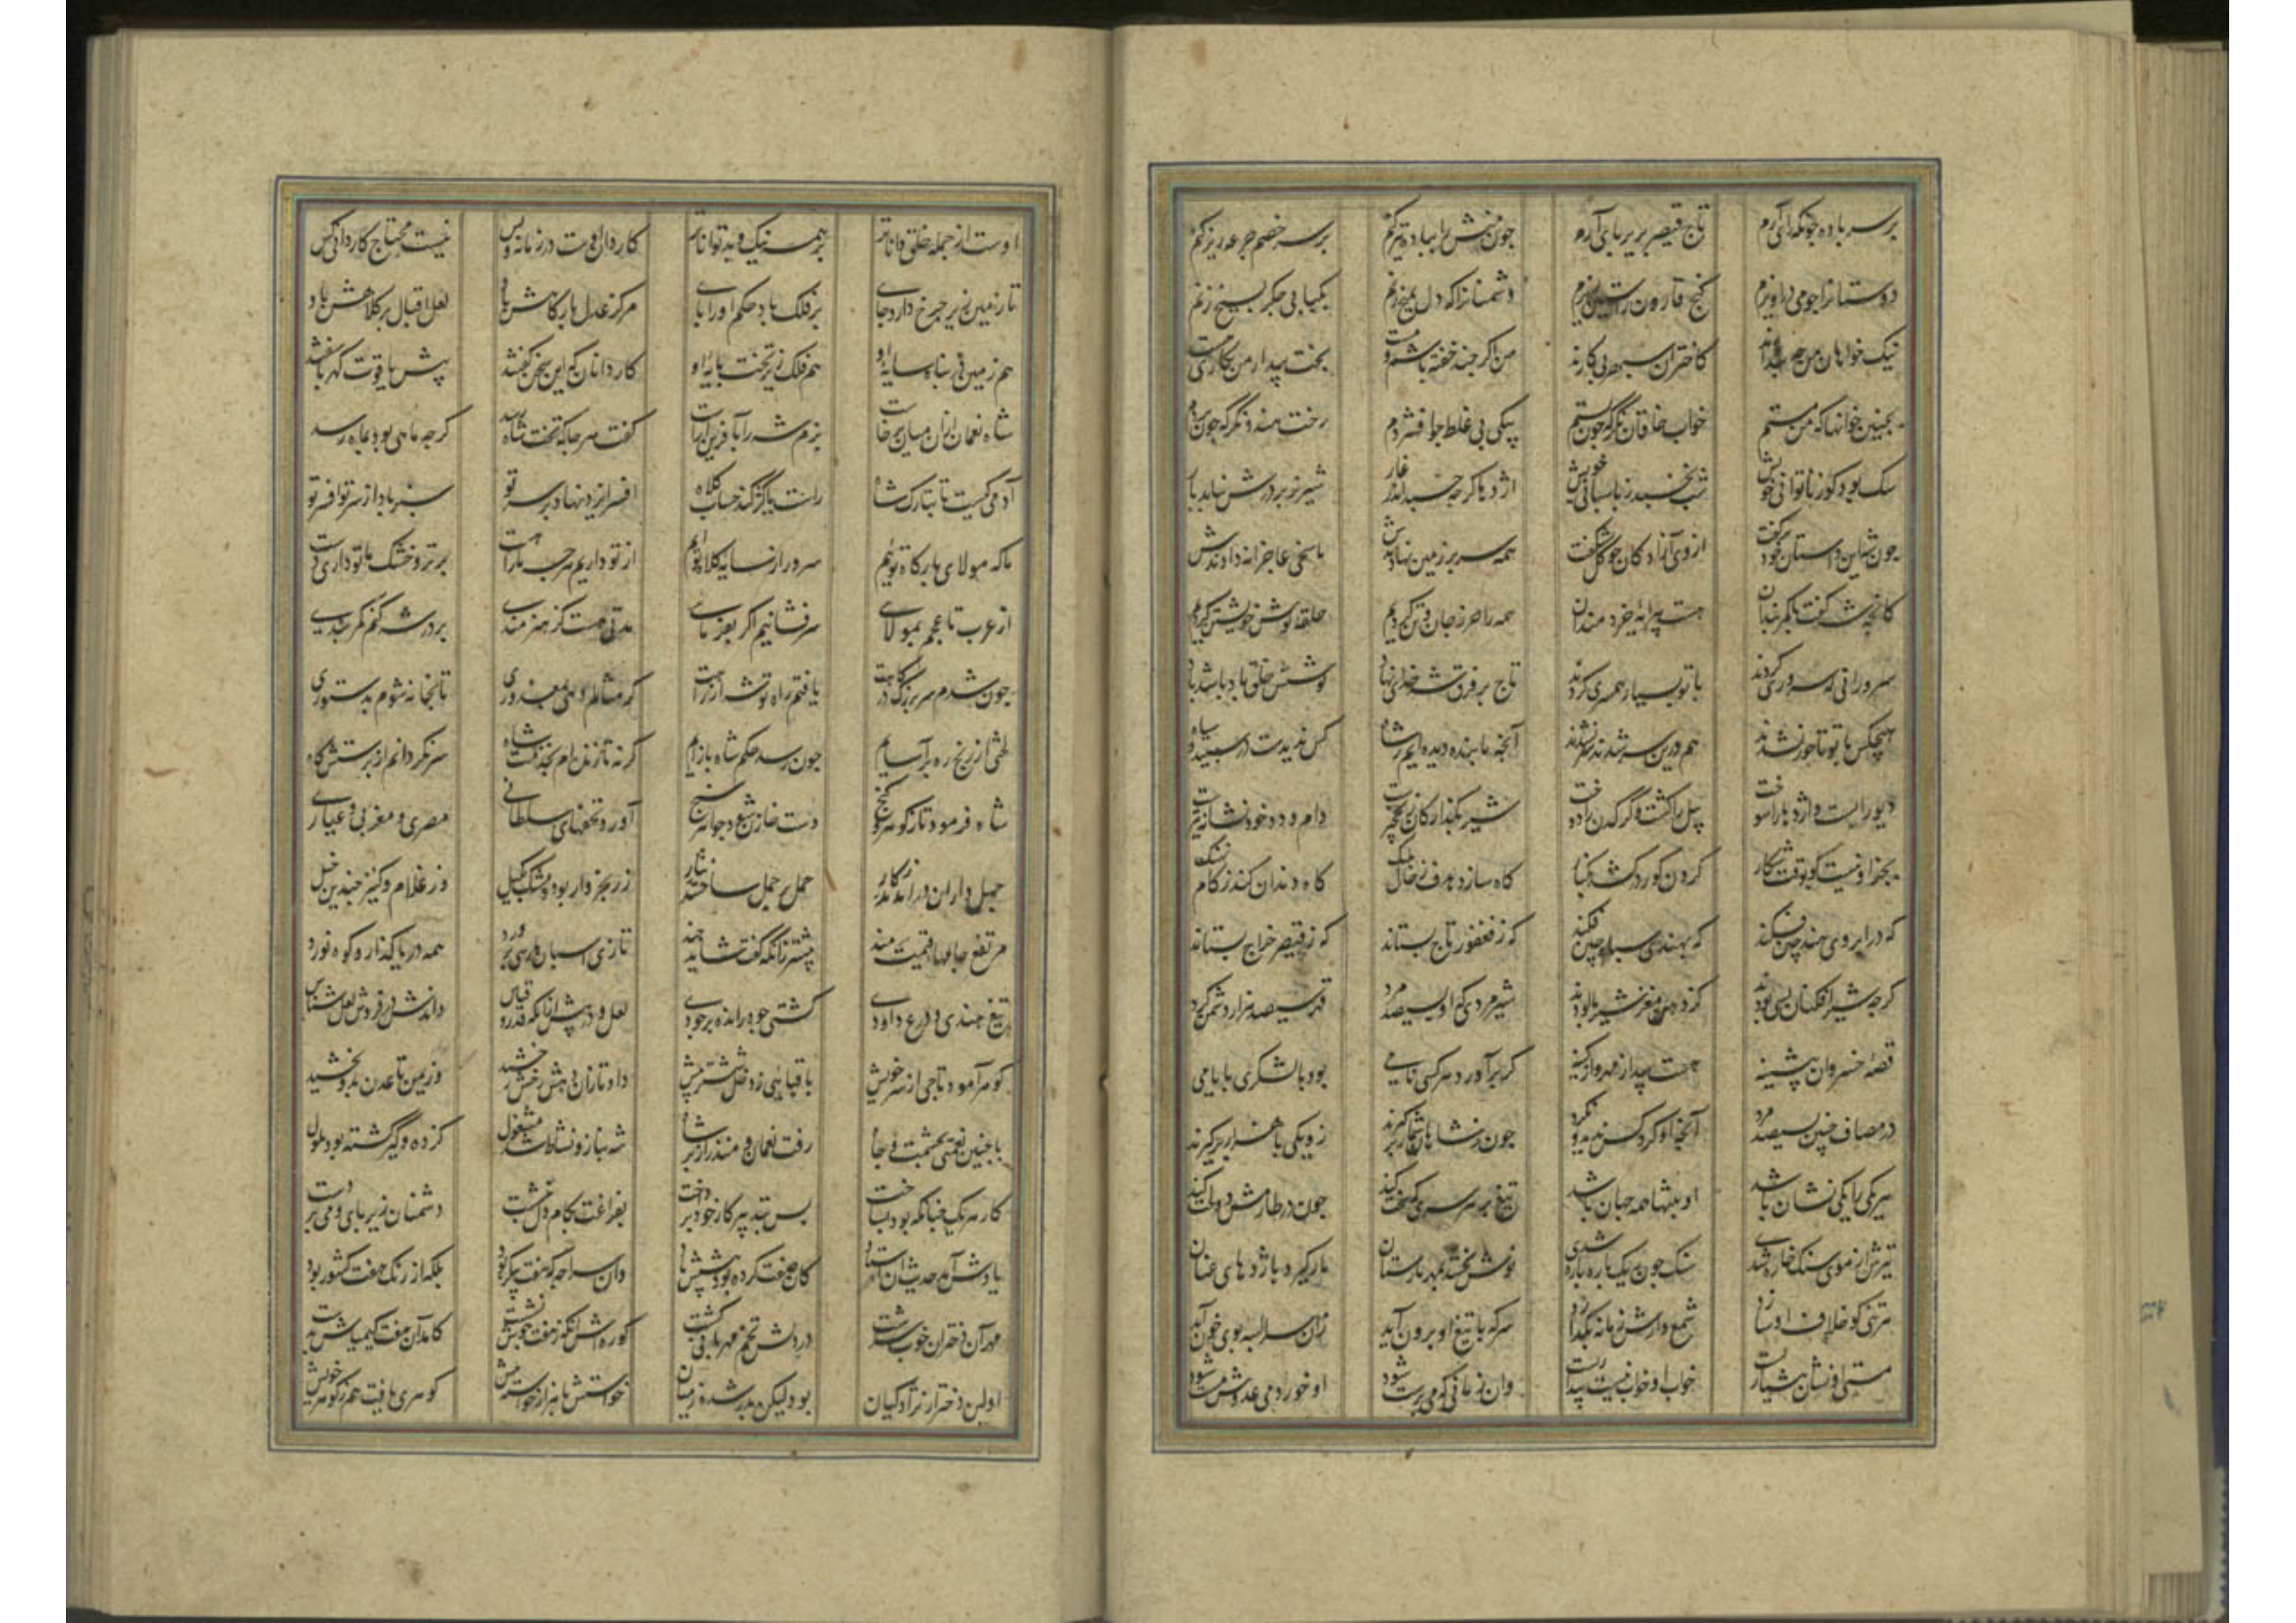 بر سر باده چونکه رای آرم تاج قیصر بزیر پای آرم چون منش را بباده تیز کنم بر سر خصم جرعه ریز کنم
دوستانرا چو می در آویزم گنج قارون ز آستین ریزم دشمنانرا که دل بیخ زنم بکبابی جگر بسیخ زنم
نیک خواهان من چه پندارند کاختران سپهر بی کارند من اگر چند خفته باشم و مست بخت بیدار من بکاری هست
بچنین خوابها که من مستم خواب خاقان نگر که چون بستم بیکی بی غلط جو افشردم رخت هندو نگر که چون بردم
سک بود کوز ناتوانی خویش شب نخسبد ز پاسبانی خویش اژدها کرچه خسبد اندر غار شیر نر بر درش نیابد بار
چون شه این داستان خود بر گفت روی آزادکان چو گل بشکفت همه سر بر زمین نهادندش پاسخی عاجزانه دادندش
کانچه شه گفت با کمربندان هست پیرایهٔ خردمندان همه را حرز جان و تن کردیم حلقهٔ گوش خویشتن کردیم
تاج بر فرق شه خدای نهاد کوشش خلق باد باشد باد
سرورانی که سروری کردند با تو بسیار همسری کردند
هیچکس با تو تاجور نشدند هم درین سر شدند و سر نشدند آنچه ما بنده دیده ایم ز شاه کس ندیدست در سپید و سیاه
دیو را بست و اژدها را سوخت پیل را کشت و کرکدن را دوخت شیر بکذار کان نخجیرست دام و دد خود نشانهٔ تیرست
بجز او نیست کو بوقت شکار کردن کور در کشد بکنار گاه سازد هدف ز خال پلنک گاه دندان کند ز کام نهنگ
که در ابروی هند چین فکند که بهندی سپاه چین فکند که ز فغفور تاج بستاند که ز قیصر خراج بستاند
کرچه شیر افکنان بسی بودند کز دهن مغز شیر پالودند شیر مردی که او بسیصد مرد قهر سیصد هزار دشمن کرد
قصهٔ خسروان پیشینه هست پیدا ز مهر و از کینه گر برآورد هر کسی نامی بود با لشکری بایامی
در مصاف چنین بسیصد مرد آنچه او کرد کس ندید و نکرد چون ز شاهان شمار برگیرند زو یکی با هزار برگیرند
هر یکی را یکی نشان باشد او بتنها همه جهان باشد تیغ بر هر سری که سخت کند چون در طارمش دو لخت کند
تیرش ار سوی سنک خاره شدی سنک چون ریک پاره پاره شدی نوش بخشد بمهر مارستان مار گیرد باژدهای عنان
هر تنی کو خلاف او سازد شمع وارش زمانه بگدازد سر که با تیغ او برون آید زان سر البته بوی خون آید
مستی او نشان هشیاریست خواب او خواب نیست بیداریست وان زمانی که می پرست شود او خورد می عدوش مست شود
اوست از جمله خلق داناتر بر همه نیک و بد تواناتر کاردان اوست در زمانه و بس نیست محتاج کاردانی کس
تا زمین زیر چرخ دارد جای بر فلک باد حکم او را پای مرکز عدل بارگاهش باد لعل اقبال بر کلاهش باد
هم زمین در پناه سایهٔ او هم فلک زیر تخت پایهٔ او کاردانان که این سخن گفتند پیش یاقوت کهربا سفتند
شاه نعمان از آن میان برخاست بزم شه را بآفرین آراست گفت هر جا که تخت شاه رسد گرچه ماهی بود بماه رسد
آدمی کیست تا بتارک شاه راست یا کژ کند حساب کلاه افسر ایزد نهاد بر سر تو سبز باد از سر تو افسر تو
ما که مولای بارگاه توئیم سرور از سایهٔ کلاه توئیم از تو داریم هر چه ما را هست بر تر و خشک ما تو داری دست
از عرب تا عجم بمولائی سر فشانیم اگر بفرمائی مدتی هست کز هنرمندی بر در شه کنم کمربندی
چون شدم سر بزرگ درگاهت یافتم راه توشه از راهت گر مثالم دهی بمعذوری تا بخانه شوم بدستوری
لختی از رنج ره بر آسایم چون رسد حکم شاه باز آیم گر نه تا زنده ام بخدمت شاه سر نگردانم از پرستش گاه
شاه فرمود تا ز گوهر و گنج دست خازن شود جواهر سنج آورد تحفهای سلطانی مصری و مغربی و عمانی
حمل داران در آمدند بکار حمل بر حمل ساختند نثار زر بخروار بود و مشک بکیل وز غلام و کنیز چندین خیل
مرتفع جامهای قیمت مند بیشتر زانکه گفت شاید چند تازی اسبان پارسی پرورد همه دریا گذار و کوه نورد
تیغ هندی و درع داودی کشتی جود راند بر جودی لعل و در بیش از انکه قدر و قیاس داندش در فروش و لعل شناس
گوهرآمود تاجی از سر خویش با قبائی ز دخل ششتر بیش داد تا زان دهش رخش رخشید وز یمن تا عدن بدو بخشید
با چنین نعمتی بحشمت و جاه رفت نعمان و منذر از بر شاه شه بناز و نشاط شد مشغول کز دگر گشته بود ملول
کار هر یک چنانکه بود بساخت پس بتدبیر کار خود پرداخت بفراغت بکام دل بنشست دشمنان زیر پای و می بر دست
یادش آمد حدیث آن استاد کان صفت کرده بود پیشش یاد وان سراچه که هفت پیکر بود بلکه ارتنگ هفت کشور بود
مهر آن دختران خوب سرشت در دلش تخم مهربانی کشت کوره ش آنگه ز هفت جوش نشست کامد آن هفت کیمیاش بدست
اولین دختر از نژاد کیان بود لیکن پدر شده ز میان خواستش با هزار خواسته بیش گوهری یافت هم ز گوهر خویش